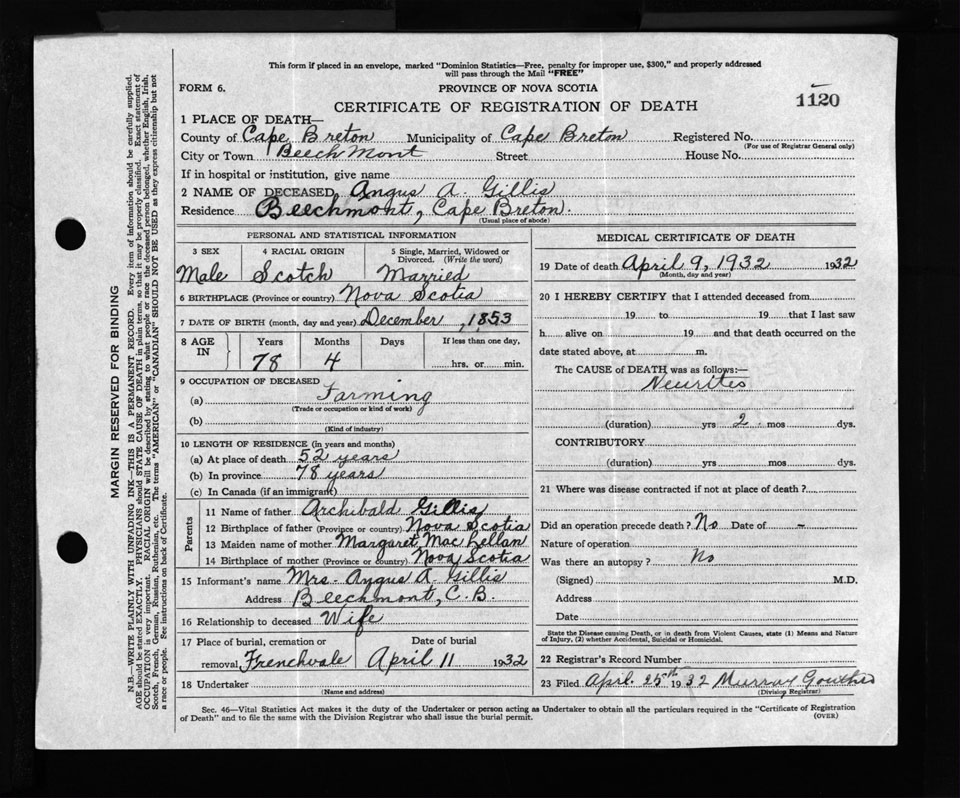 This form if placed in an envelope, marked "Dominion Statistics—Free, penalty for improper use, $300," and properly addressed
will pass through the Mail "FREE"
FORM 6.
PROVINCE OF NOVA SCOTIA
1120
CERTIFICATE OF REGISTRATION OF DEATH
1 PLACE OF DEATH—
County of Cape Breton Municipality of Cape Breton Registered No.
(For use of Registrar General only)
City or Town Beech Mont Street House No.
If in hospital or institution, give name
2 NAME OF DECEASED Angus A. Gillis
Residence Beechmont, Cape Breton.
(Usual place of abode)
PERSONAL AND STATISTICAL INFORMATION
3 SEX 4 RACIAL ORIGIN 5 Single, Married, Widowed or
Divorced. (Write the word)
Male Scotch Married
6 BIRTHPLACE (Province or country) Nova Scotia
7 DATE OF BIRTH (month, day and year) December, 1853
8 AGE IN Years Months Days If less than one day,
78 4 hrs. or min.
9 OCCUPATION OF DECEASED
(a) Farming
(Trade or occupation or kind of work)
(b)
(Kind of industry)
10 LENGTH OF RESIDENCE (in years and months)
(a) At place of death 52 years
(b) In province 78 years
(c) In Canada (if an immigrant)
Parents
11 Name of father Archibald Gillis
12 Birthplace of father (Province or country) Nova Scotia
13 Maiden name of mother Margaret MacLellan
14 Birthplace of mother (Province or country) Nova Scotia
15 Informant's name Mrs. Angus A. Gillis
Address Beechmont, C.B.
16 Relationship to deceased Wife
17 Place of burial, cremation or Date of burial
removal Frenchvale April 11 1932
18 Undertaker
(Name and address)
MEDICAL CERTIFICATE OF DEATH
19 Date of death April 9, 1932 1932
(Month, day and year)
20 I HEREBY CERTIFY that I attended deceased from
19 to 19 that I last saw
h alive on 19 and that death occurred on the
date stated above, at m.
The CAUSE of DEATH was as follows:—
Neurites
(duration) yrs 2 mos dys.
CONTRIBUTORY
(duration) yrs mos dys.
21 Where was disease contracted if not at place of death?
Did an operation precede death? No Date of –
Nature of operation
Was there an autopsy? No
(Signed) M.D.
Address
Date
State the Disease causing Death, or in death from Violent Causes, state (1) Means and Nature
of Injury, (2) whether Accidental, Suicidal or Homicidal.
22 Registrar's Record Number
23 Filed April 25th 1932 Murray
(Division Registrar)
Sec. 46—Vital Statistics Act makes it the duty of the Undertaker or person acting as Undertaker to obtain all the particulars required in the "Certificate of Registration
of Death" and to file the same with the Division Registrar who shall issue the burial permit.
(OVER)
MARGIN RESERVED FOR BINDING
N.B.—WRITE PLAINLY WITH UNFADING INK—THIS IS A PERMANENT RECORD. Every item of information should be carefully supplied.
AGE should be stated EXACTLY. PHYSICIANS should STATE CAUSE OF DEATH in plain terms, so that it may be properly classified. Exact statement of
OCCUPATION is very important. RACIAL ORIGIN will be described by stating to what people or race the deceased person belonged, whether English, Irish,
Scotch, French, German, Russian, Ruthenian, etc. The terms "AMERICAN" or "CANADIAN" SHOULD NOT BE USED as they express citizenship but not
a race or people. See instructions on back of Certificate.